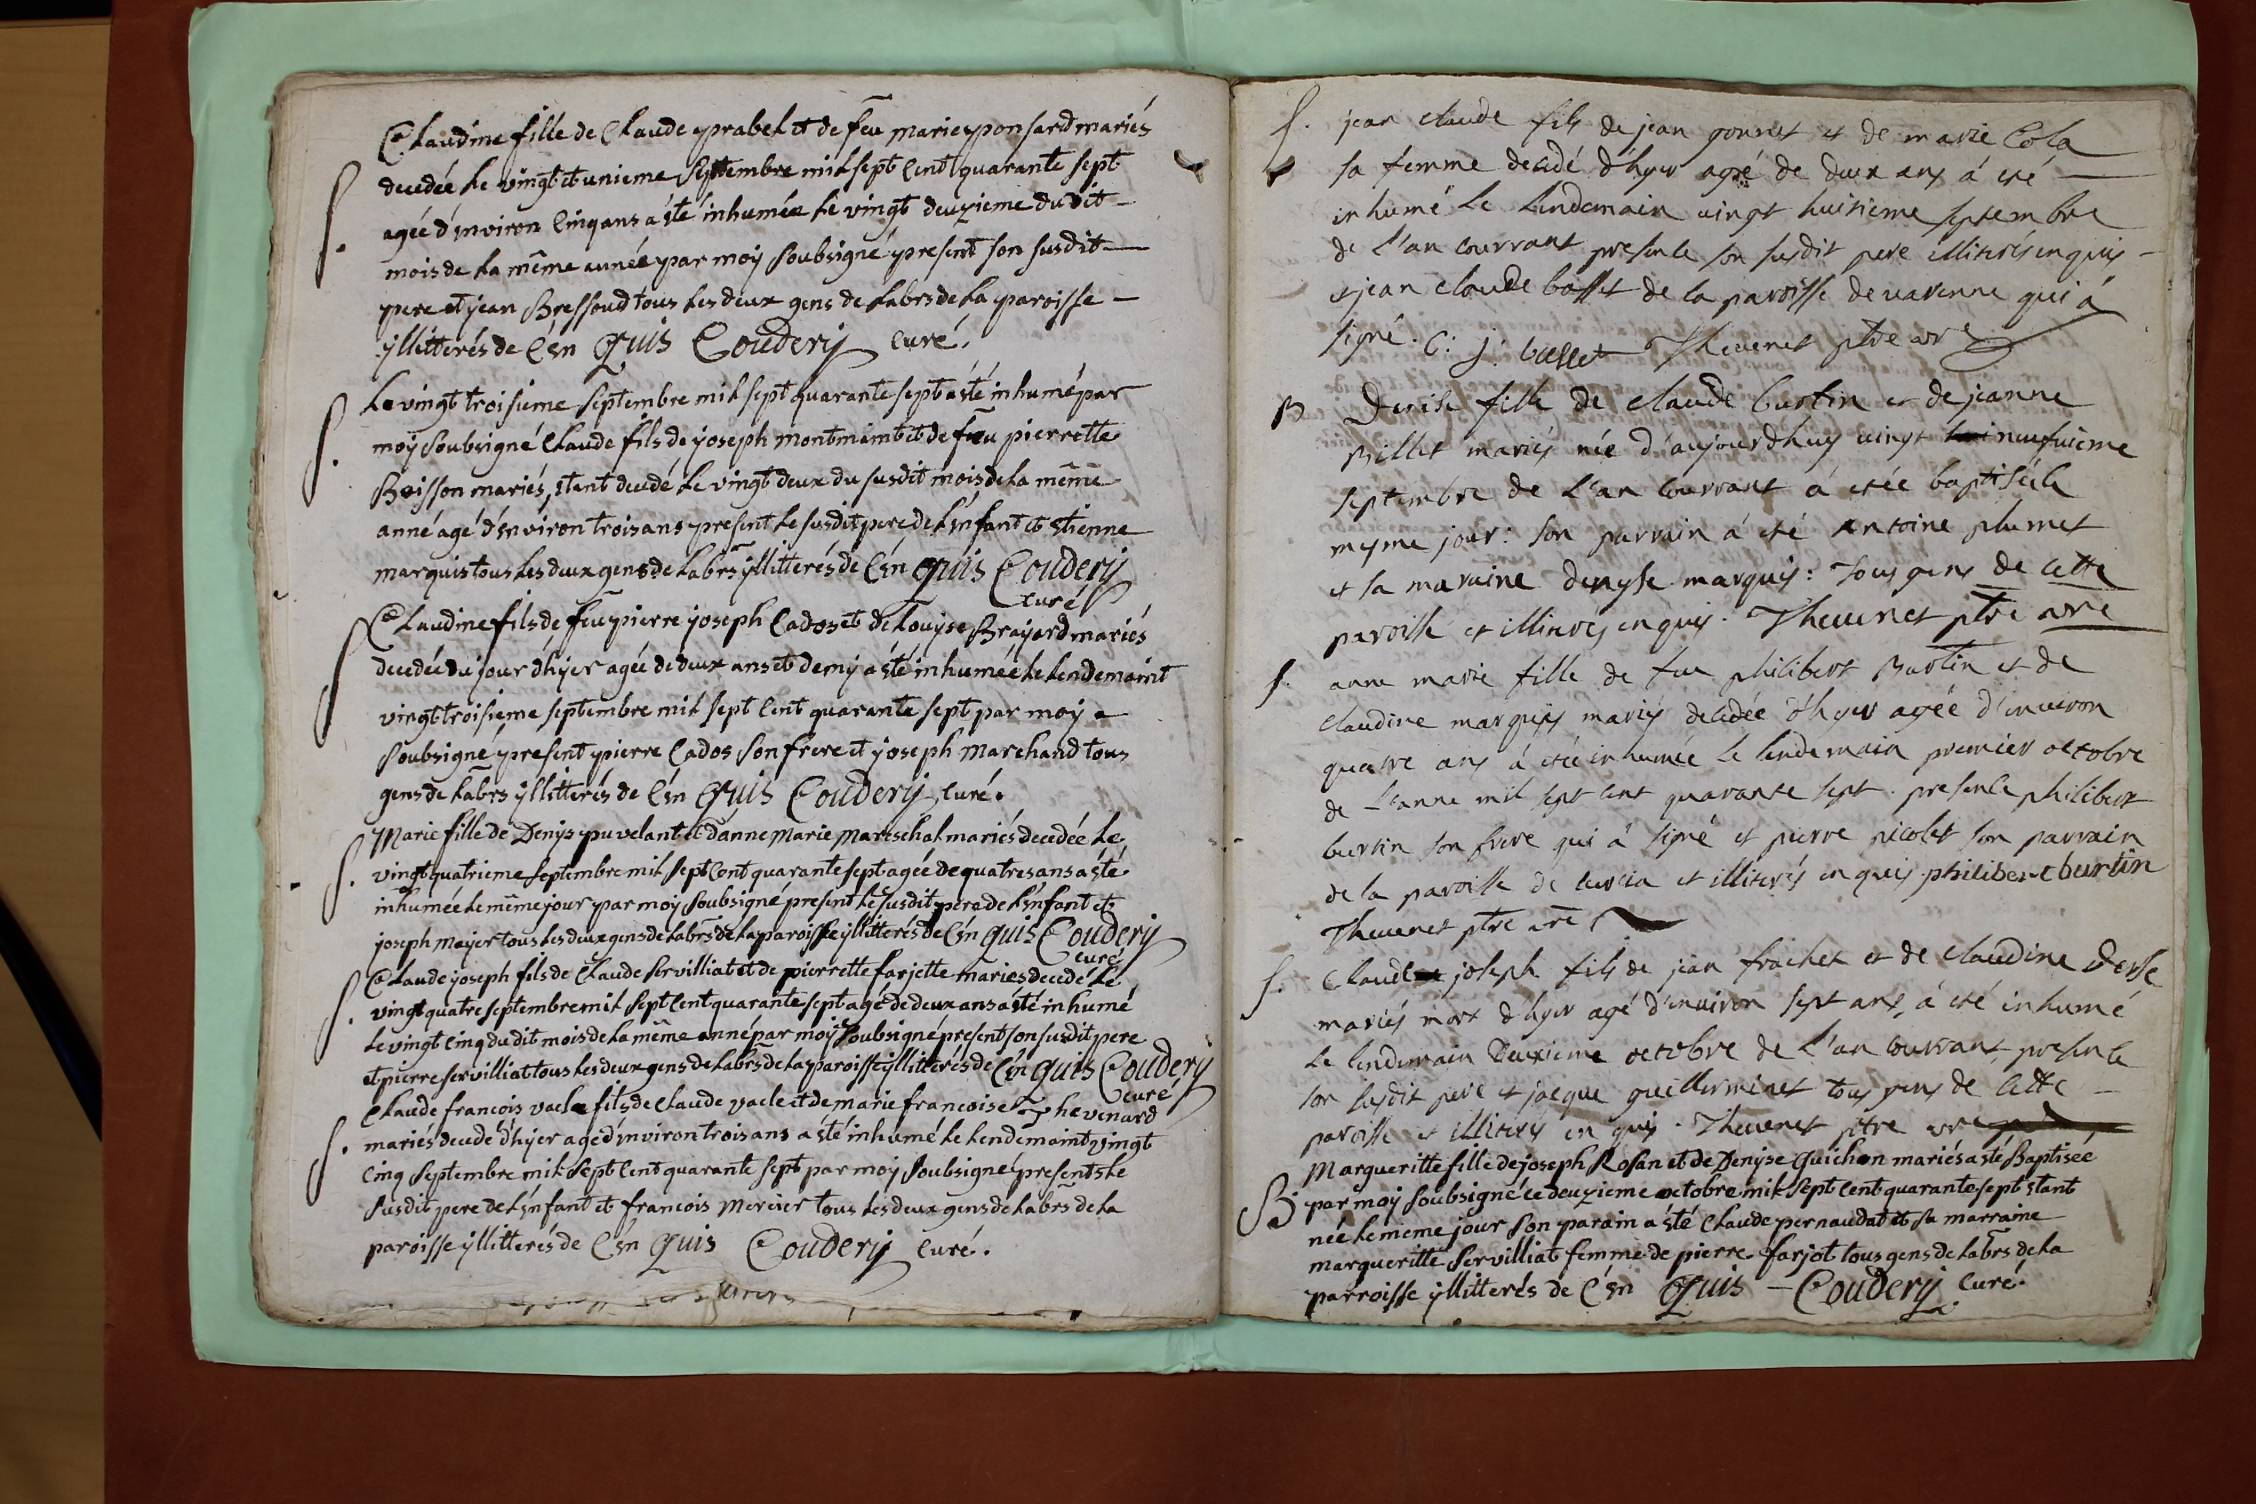 Claudine fille de Claude prabel et de feu marie ponsard mariés
S. decedée le vingt et unieme Septembre mil sept Cent quarante sept
agéé d'Environ Cinq ans a été inhumée le vingt deuzieme du dit
mois de la même année par moÿ soubsigné present son susdit
pere et jean Bressoud tous les deux gens de labrs de la paroisse
ÿllitterés de Cën Quis Couderÿ curé.
S. Le vingt troisieme septembre mil sept quarante sept a été inhumé par
moÿ soubsigné Claude fils de joseph montmain et de feu pierrette
Boisson mariés, étant decedé le vingt deux du susdit mois de la même
anné agé d'Environ trois ans present le susdit pere de l'Enfant et Etienne
marquis tous les deux gens de labrs ÿllitterés de Cën Quis Couderÿ
curé
S Claudine fils de feu pierre joseph Cados et de Louÿse Brayard mariés
decedée du jour d'hÿer agée de deux ans et demÿ a été inhumée le lendemaint
vingt troisieme septembre mil sept Cent quarante sept par moÿ
soubsigné present pierre Cados son frere et joseph marchand tous
gens de labrs ÿllitterés de Cën Quis Couderÿ, curé.
Marie fille de Denÿs puvelant et d'anne Marie Mareschal mariés decedée le
S. vingt quatrieme septembre mil sept Cent quarante sept agée de quatres ans a été
inhumée le même jour par moÿ soubsigné present le susdit pere de l'Enfant et
joseph Meÿer tous les deux gens de labrs de la paroisse ÿllitterés de Cën Quis Couderÿ
curé
Claude joseph fils de Claude servilliat et de pierrette farjette mariés decedé le
S. vingt quatre septembre mil sept Cent quarante sept agé de deux ans a été inhumé
le vingt Cinq du dit mois de la même anné par moÿ soubsigné present son susdit pere
et pierre servilliat tous les deux gens de labrs de la paroisse ÿllitterés de Cën Quis Couderÿ
curé
Claude francois vacle fils de Claude vacle et de marie francoise Thevenard
S. mariés decedé d'hÿer agé d'Environ trois ans a été inhumé le lendemaint vingt
Cinq septembre mil sept Cent quarante sept par moÿ soubsigné present le
susdit pere de l'Enfant et francois mercier tous les deux gens de labrs de la
paroisse ÿllitterés de Cën Quis Couderÿ curé.
S. jean claude fils de jean gonnet et de marie Cola
sa femme decedé d'hyer agé de deux ans á eté
inhumé le lendemain vingt huitieme septembre
de l'an courrant presence son susdit pere illiterés enquis
et jean claude basset de la paroisse de varenne qui á
signé. C: j: basset Thevenet ptre vre
B Denise fille de claude burtin et de jeanne
Billet mariés née d'aujourdhuy vingt neufvieme
septembre de l'an courrant á etée baptisée le
mesme jour: son parrain á eté antoine plumet
et sa maraine denyse marquis: tous gens de cette
paroisse et illiterés enquis. Thevenet ptre vre
S. anne marie fille de feu philibert Burtin et de
claudine marquis mariés decedée d'hyer agée d'environ
quatre ans á etée inhumée le lendemain premier octobre
de l'anne mil sept cent quarante sept. presence philibert
burtin son frere qui á signé et pierre nicolet son parrain
de la paroisse de curcia et illiterés enquis. philibert burtin
Thevenet ptre vre
S. Claude joseph fils de jean frachet et de claudine Desse
mariés mort d'hyer agé d'environ sept ans, á eté inhumé
le lendemain Deuxieme octobre de l'an courrant, presence
son susdit pere et jacque guillerminet tous gens de cette
paroisse et illiterés enquis. Thevenet ptre vre
Margueritte fille de joseph Rosan et de Denÿse Guichon mariés a été Baptisée
B. par moÿ soubsigné ce deuzieme octobre mil sept Cent quarante sept étant
née le meme jour son parain a été Claude pernaudat et sa marraine
margueritte servilliat femme de pierre farjot tous gens de labrs de la
parroisse ÿllitterés de Cën Quis Couderÿ curé.